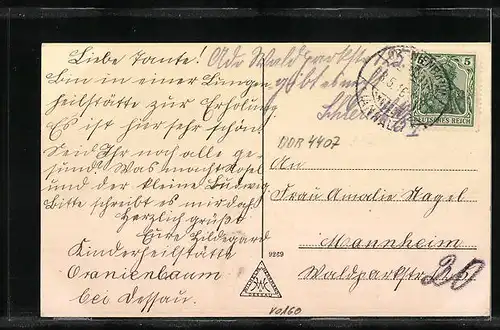 Liebe Tante!
Bin in einer Lungen
heilstätte zur Erholung
Es ist hier sehr schön.
Seid Ihr noch alle ge-
sund? Was macht Rosel
und der kleine Ludwig
Bitte schreibt es mir doch
Herzlich grüßt
Eure Hildegard
Kinderheilstätte
Oranienbaum
bei Dessau.
Adr Waldparkstr
gibt es nicht
5
DEUTSCHES REICH
DDR 4407
An
Frau Amalie Nagel
Mannheim
Waldparkstr. 20
9269
V0160